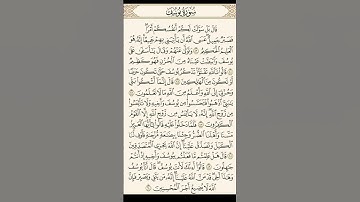 سُورَةُ يُوسُفَ
قَالَ بَلْ سَوَّلَتْ لَكُمْ أَنفُسُكُمْ أَمْرًا
فَصَبْرٌ جَمِيلٌ عَسَى ٱللَّهُ أَن يَأْتِيَنِي بِهِمْ جَمِيعًا إِنَّهُۥ هُوَ
ٱلْعَلِيمُ ٱلْحَكِيمُ وَتَوَلَّىٰ عَنْهُمْ وَقَالَ يَٰٓأَسَفَىٰ عَلَىٰ
يُوسُفَ وَٱبْيَضَّتْ عَيْنَاهُ مِنَ ٱلْحُزْنِ فَهُوَ كَظِيمٌ
قَالُوا۟ تَٱللَّهِ تَفْتَؤُا۟ تَذْكُرُ يُوسُفَ حَتَّىٰ تَكُونَ حَرَضًا
أَوْ تَكُونَ مِنَ ٱلْهَٰلِكِينَ قَالَ إِنَّمَآ أَشْكُوا۟ بَثِّي
وَحُزْنِيٓ إِلَى ٱللَّهِ وَأَعْلَمُ مِنَ ٱللَّهِ مَا لَا تَعْلَمُونَ
يَٰبَنِيَّ ٱذْهَبُوا۟ فَتَحَسَّسُوا۟ مِن يُوسُفَ وَأَخِيهِ وَلَا تَا۟يْـَٔسُوا۟
مِن رَّوْحِ ٱللَّهِ إِنَّهُۥ لَا يَا۟يْـَٔسُ مِن رَّوْحِ ٱللَّهِ إِلَّا ٱلْقَوْمُ
ٱلْكَٰفِرُونَ فَلَمَّا دَخَلُوا۟ عَلَيْهِ قَالُوا۟ يَٰٓأَيُّهَا ٱلْعَزِيزُ
مَسَّنَا وَأَهْلَنَا ٱلضُّرُّ وَجِئْنَا بِبِضَٰعَةٍ مُّزْجَىٰةٍ فَأَوْفِ لَنَا
ٱلْكَيْلَ وَتَصَدَّقْ عَلَيْنَآ إِنَّ ٱللَّهَ يَجْزِي ٱلْمُتَصَدِّقِينَ
قَالَ هَلْ عَلِمْتُم مَّا فَعَلْتُم بِيُوسُفَ وَأَخِيهِ إِذْ أَنتُمْ
جَٰهِلُونَ قَالُوٓا۟ أَءِنَّكَ لَأَنتَ يُوسُفُ قَالَ أَنَا۠ يُوسُفُ
وَهَٰذَآ أَخِي قَدْ مَنَّ ٱللَّهُ عَلَيْنَآ إِنَّهُۥ مَن يَتَّقِ وَيَصْبِرْ فَإِنَّ
ٱللَّهَ لَا يُضِيعُ أَجْرَ ٱلْمُحْسِنِينَ